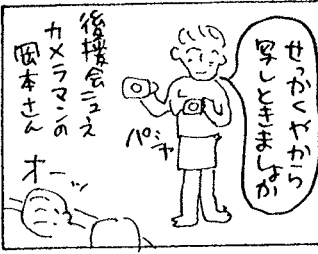 せっかくやから
写しときましょか
パシャ
後援会ニュース
カメラマンの
岡本さん
オーッ